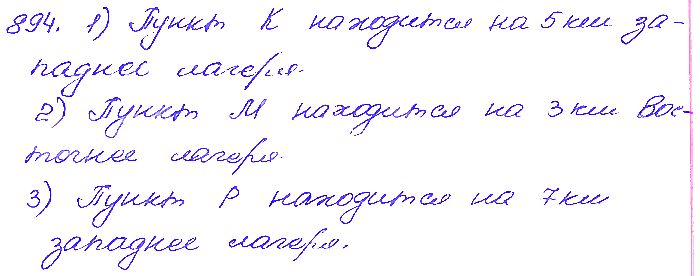 894. 1) Пункт К находится на 5 км за-
паднее лагеря.
2) Пункт М находится на 3 км Вос-
точнее лагеря.
3) Пункт Р находится на 7 км
западнее лагеря.